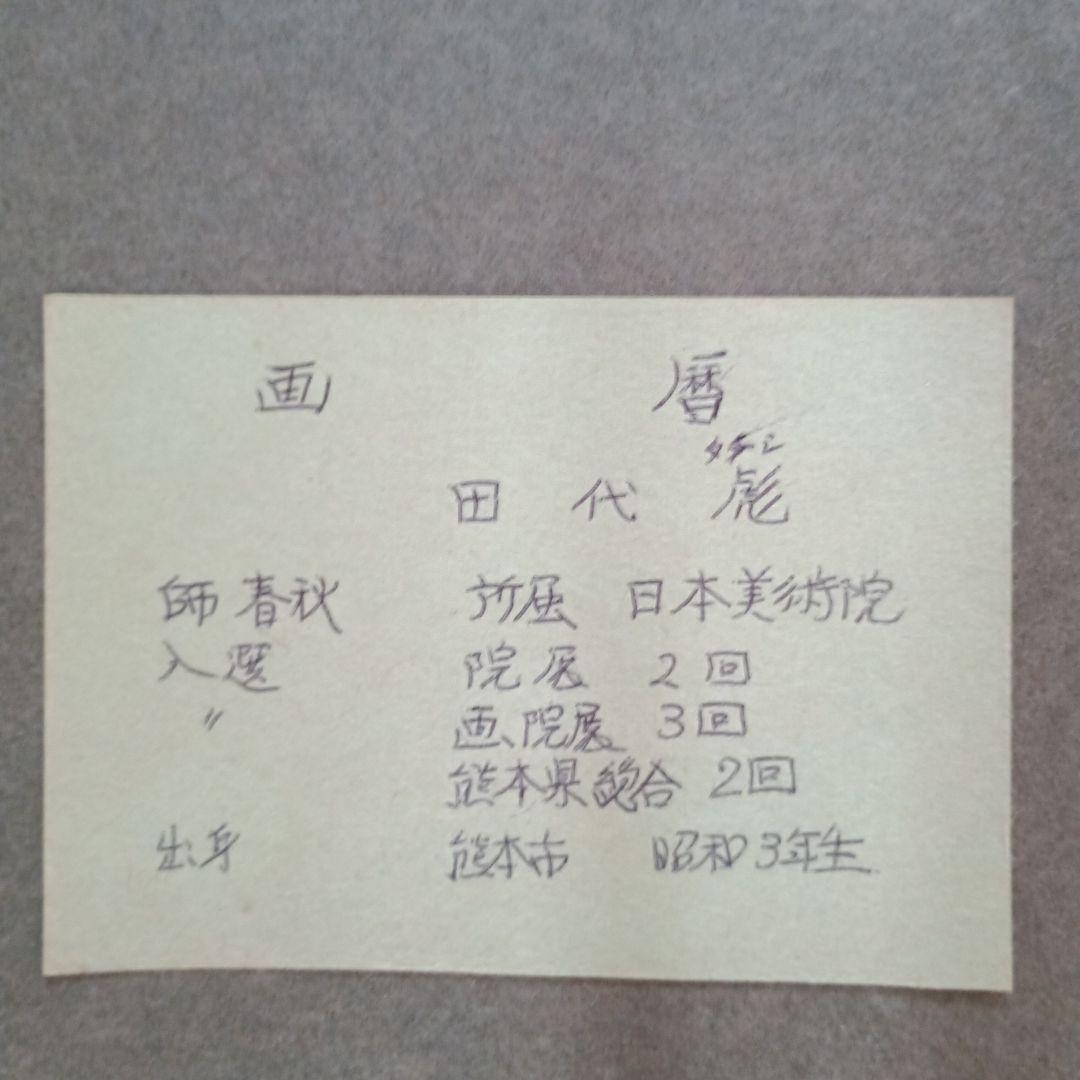 画 暦
タケシ
田 代 彪
師 春秋 所属 日本美術院
入選 院展 2回
〃 画院展 3回
熊本県総合 2回
出身 熊本市 昭和3年生